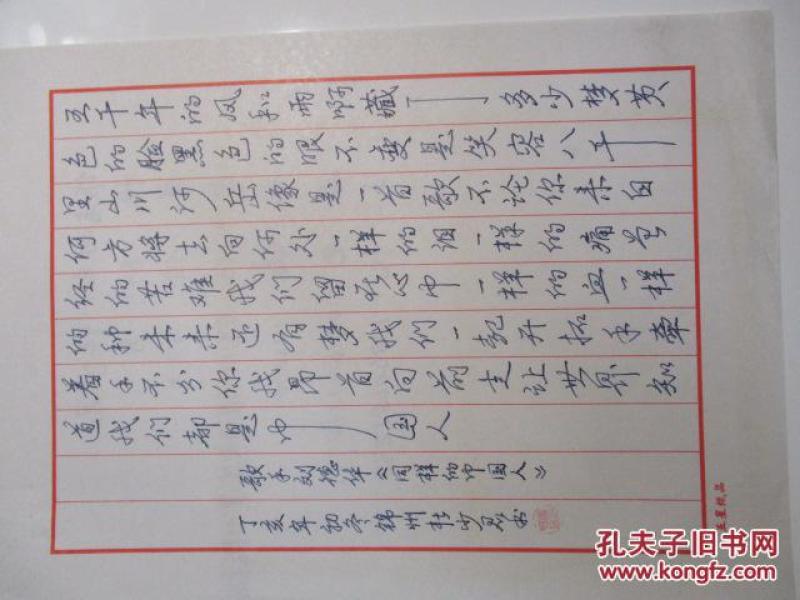 五千年的风和雨啊藏了多少梦黄
色的脸黑色的眼不变是笑容八千
里山川河岳像是一首歌不论你来自
何方将去向何处一样的泪一样的痛曾
经的苦难我们留在心中一样的血一样
的种未来还有梦我们一起开拓手牵
着手不分你我昂首向前走让世界知
道我们都是中国人
歌手刘德华《同样的中国人》
丁亥年初冬锦州杜书
孔夫子旧书网
www.kongfz.com